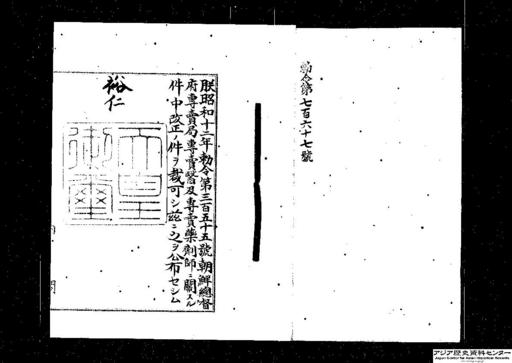 勅令第七百六十七號
朕昭和十二年勅令第三百五十五號朝鮮總督
府專賣局專賣醫及專賣藥劑師ニ關スル
件中改正ノ件ヲ裁可シ茲ニ之ヲ公布セシム
裕仁
天皇御璽
内閣
アジア歴史資料センター
Japan Center for Asian Historical Records